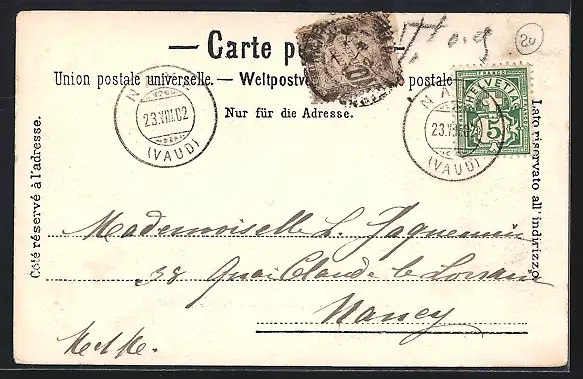 Carte
Union postale universelle. — Weltpostve postale
Nur für die Adresse.
Côté réservé à l'adresse.
Lato riservato all'indirizzo.
23.VIII.02
(VAUD)
10
23.VIII.02
(VAUD)
FRANCO
HELVETIA
5
20
Mademoiselle L. Jaquemin
38 Quai Claude le Lorrain
Nancy